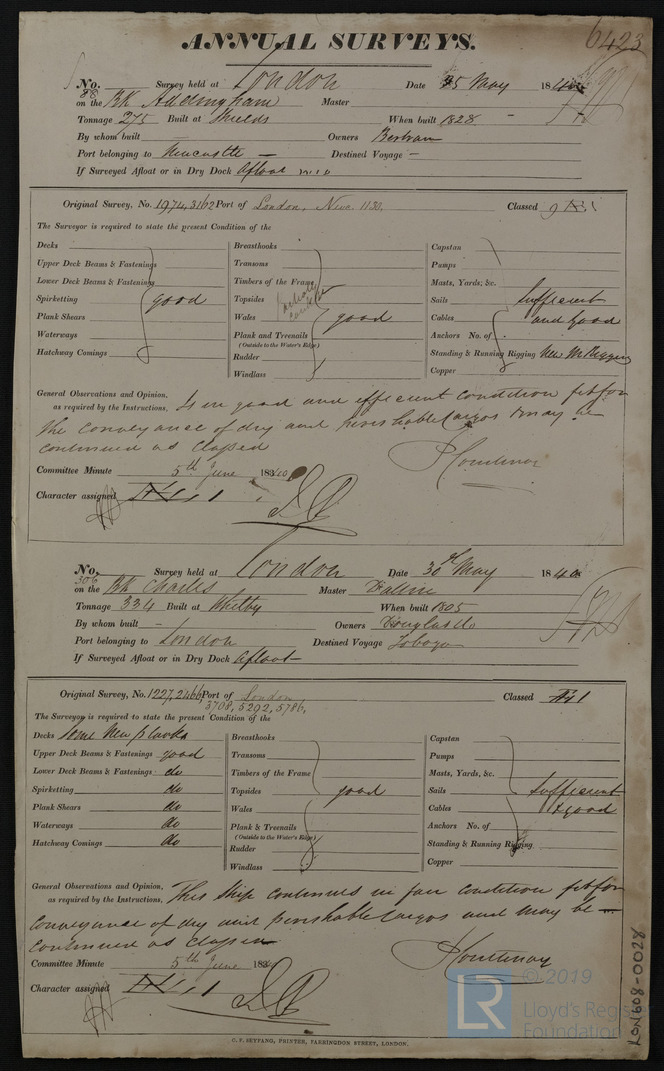 6423
ANNUAL SURVEYS.
No. 88 Survey held at London Date 25 May 1840
on the BK Addingham Master
Tonnage 275 Built at Shields When built 1828
By whom built Owners Bertram
Port belonging to Newcastle Destined Voyage
If Surveyed Afloat or in Dry Dock Afloat
Original Survey, No. 1974, 3162 Port of London, Newc. 1130. Classed
The Surveyor is required to state the present Condition of the
Decks
Upper Deck Beams & Fastenings
Lower Deck Beams & Fastenings
Spirketting good
Plank Shears
Waterways
Hatchway Comings
Breasthooks
Transoms
Timbers of the Frame
Topsides
Wales good
Plank and Treenails
(Outside to the Water's Edge)
Rudder
Windlass
Capstan
Pumps
Masts, Yards, &c.
Sails Sufficient
Cables and good
Anchors No. of
Standing & Running Rigging New M Rigging
Copper
General Observations and Opinion, Is in good and efficient condition fit for
as required by the Instructions. the conveyance of dry and perishable Cargos & may be
continued as Classed
Committee Minute 5th June 1840
Character assigned
No. 306 Survey held at London Date 30th May 1840
on the BK Charles Master
Tonnage 334 Built at Whitby When built 1805
By whom built - Owners Douglas & Co
Port belonging to London Destined Voyage Tobago
If Surveyed Afloat or in Dry Dock Afloat
Original Survey, No. 1227, 2466 Port of London
3708, 5292, 5786, Classed Æ1
The Surveyor is required to state the present Condition of the
Decks Some New planks
Upper Deck Beams & Fastenings good
Lower Deck Beams & Fastenings do
Spirketting do
Plank Shears do
Waterways do
Hatchway Comings do
Breasthooks
Transoms
Timbers of the Frame
Topsides good
Wales
Plank & Treenails
(Outside to the Water's Edge)
Rudder
Windlass
Capstan
Pumps
Masts, Yards, &c.
Sails Sufficient
Cables & good
Anchors No. of
Standing & Running Rigging
Copper
General Observations and Opinion, This Ship continues in fair condition fit for
as required by the Instructions. conveyance of dry and perishable Cargos and may be
continued as Classed
Committee Minute 5th June 183
Character assigned
C. F. SEYFANG, PRINTER, FARRINGDON STREET, LONDON.
LON608-0028
LR
© 2019
Lloyd's Register
Foundation